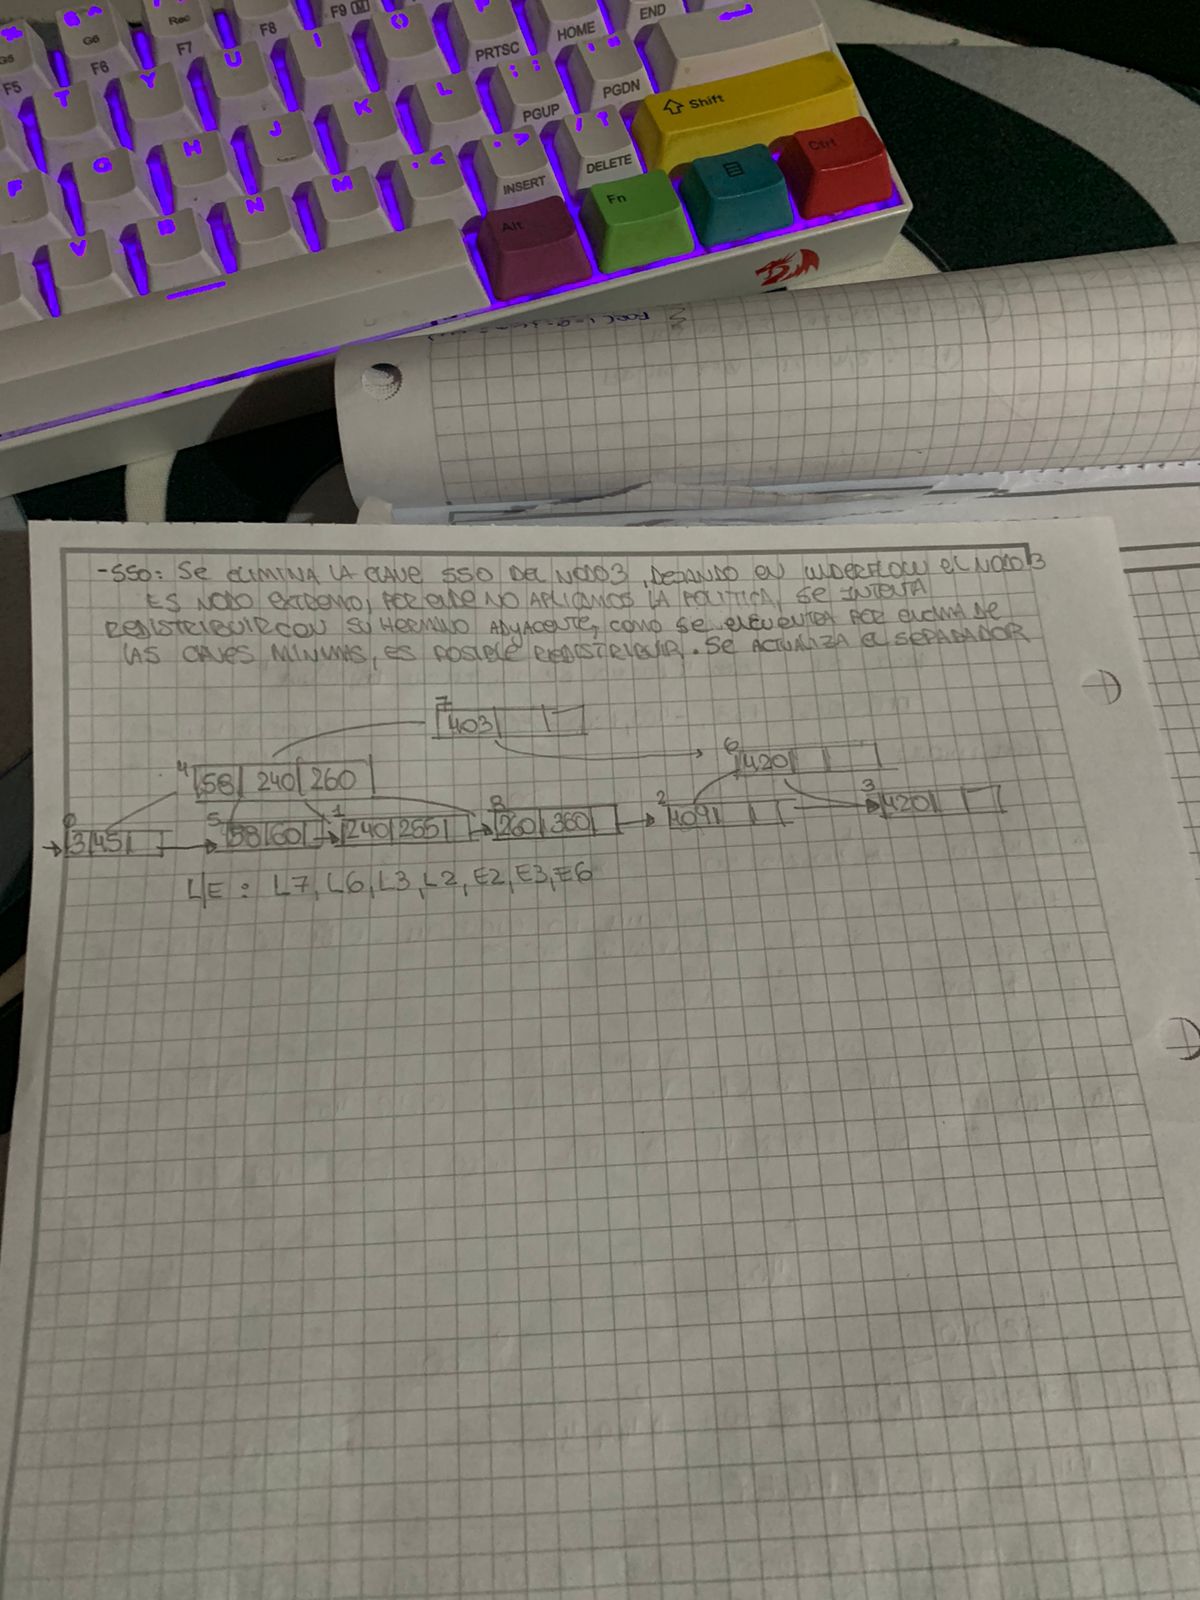 F9
END
Rec
F8
HOME
G6
G6
F7
PRTSC
F5
F6
U
I
PGDN
T
Y
L
PGUP
Shift
K
J
DELETE
Ctrl
G
H
INSERT
F
M
Fn
N
Alt
V
B
-550: SE ELIMINA LA CLAVE 550 DEL NODO 3, DEJANDO EN UNDERFLOW EL NODO 3
ES NODO EXTREMO, POR ENDE NO APLICAMOS LA POLITICA, SE INTENTA
REDISTRIBUIR CON SU HERMANO ADYACENTE, COMO SE ENCUENTRA POR ENCIMA DE
LAS CLAVES MINIMAS, ES POSIBLE REDISTRIBUIR. SE ACTUALIZA EL SEPARADOR
7
403
6
420
4
58 240 260
0
3 45
5
58 60
1
240 255
8
260 360
2
409
3
420
L/E: L7, L6, L3, L2, E2, E3, E6